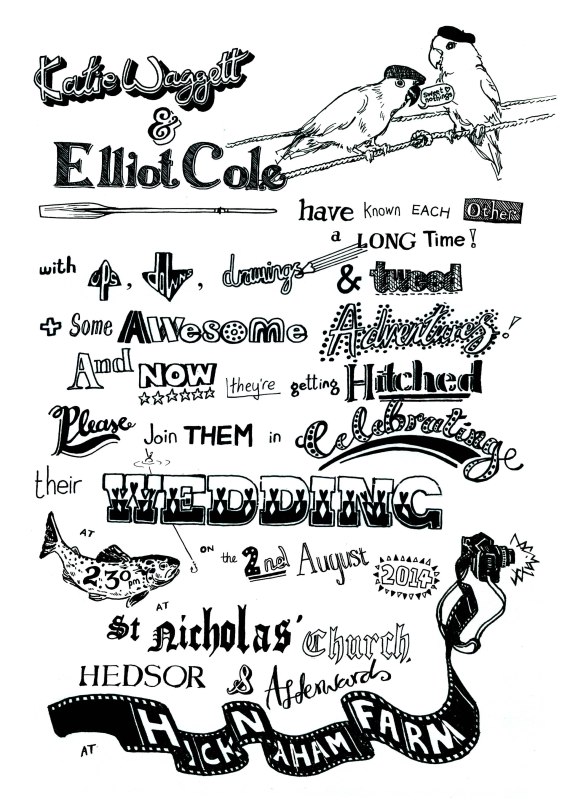 Katie Waggett
sweet nothings
&
Elliot Cole
have Known EACH Other
a LONG Time!
with ups, downs, drawings & tweed
+ Some AWesome Adventures!
And NOW they're getting Hitched
Please Join THEM in Celebrating
their WEDDING
AT 2.30pm ON the 2nd August 2014
AT
St Nicholas' Church,
HEDSOR & Afterwards
AT HICKNAHAM FARM